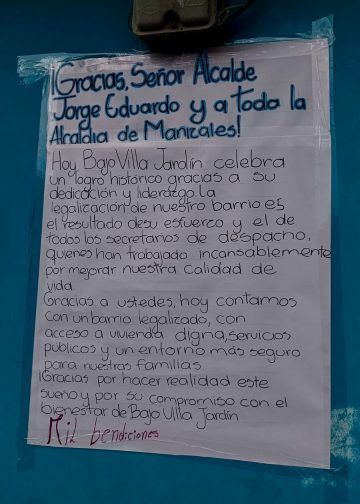 ¡Gracias, Señor Alcalde
Jorge Eduardo y a toda la
Alcaldia de Manizales!
Hoy Bajo Villa Jardín celebra
un logro histórico gracias a su
dedicación y liderazgo. La
legalización de nuestro barrio es
el resultado de su esfuerzo y el de
todos los secretarios de despacho,
quienes han trabajado incansablemente
por mejorar nuestra calidad de
vida.
Gracias a ustedes, hoy contamos
con un barrio legalizado, con
acceso a vivienda digna, servicios
públicos y un entorno más seguro
para nuestras familias.
¡Gracias por hacer realidad este
sueño y por su compromiso con el
bienestar de Bajo Villa Jardín
Mil bendiciones